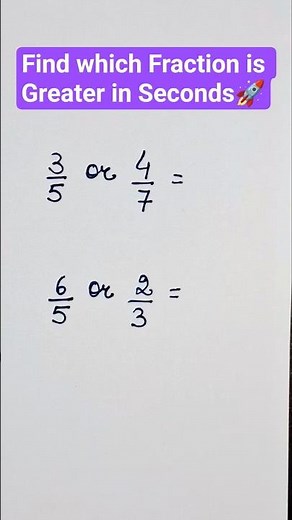 Find which Fraction is
Greater in Seconds🚀
3/5 or 4/7 =
6/5 or 2/3 =